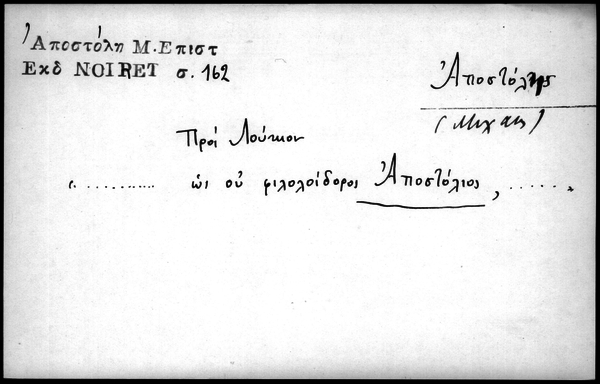 Ἀποστόλη Μ. Επιστ
Εκδ NOIRET σ. 162
Ἀποστόλης
(Μιχαήλ)
Πρός Λούκιον
« ........... ὡς οὐ φιλολοίδορος Ἀποστόλιος, ...... »